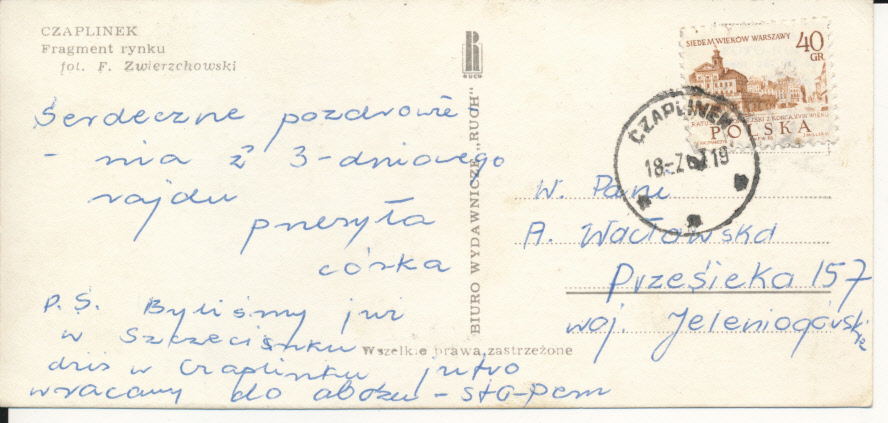 CZAPLINEK
Fragment rynku
fot. F. Zwierzchowski
Serdeczne pozdrowie
- nia z 3-dniowego
rajdu
przesyła
córka
P.S. Byliśmy już
w Szczecinku
dziś w Czaplinku jutro
wracamy do obozu -
BIURO WYDAWNICZE „RUCH”
RUCH
Wszelkie prawa zastrzeżone
SIEDEM WIEKÓW WARSZAWY
40
GR
POLSKA
CZAPLINEK
W. Pani
A. Wacławska
Przesieka 157
woj. Jeleniogórskie